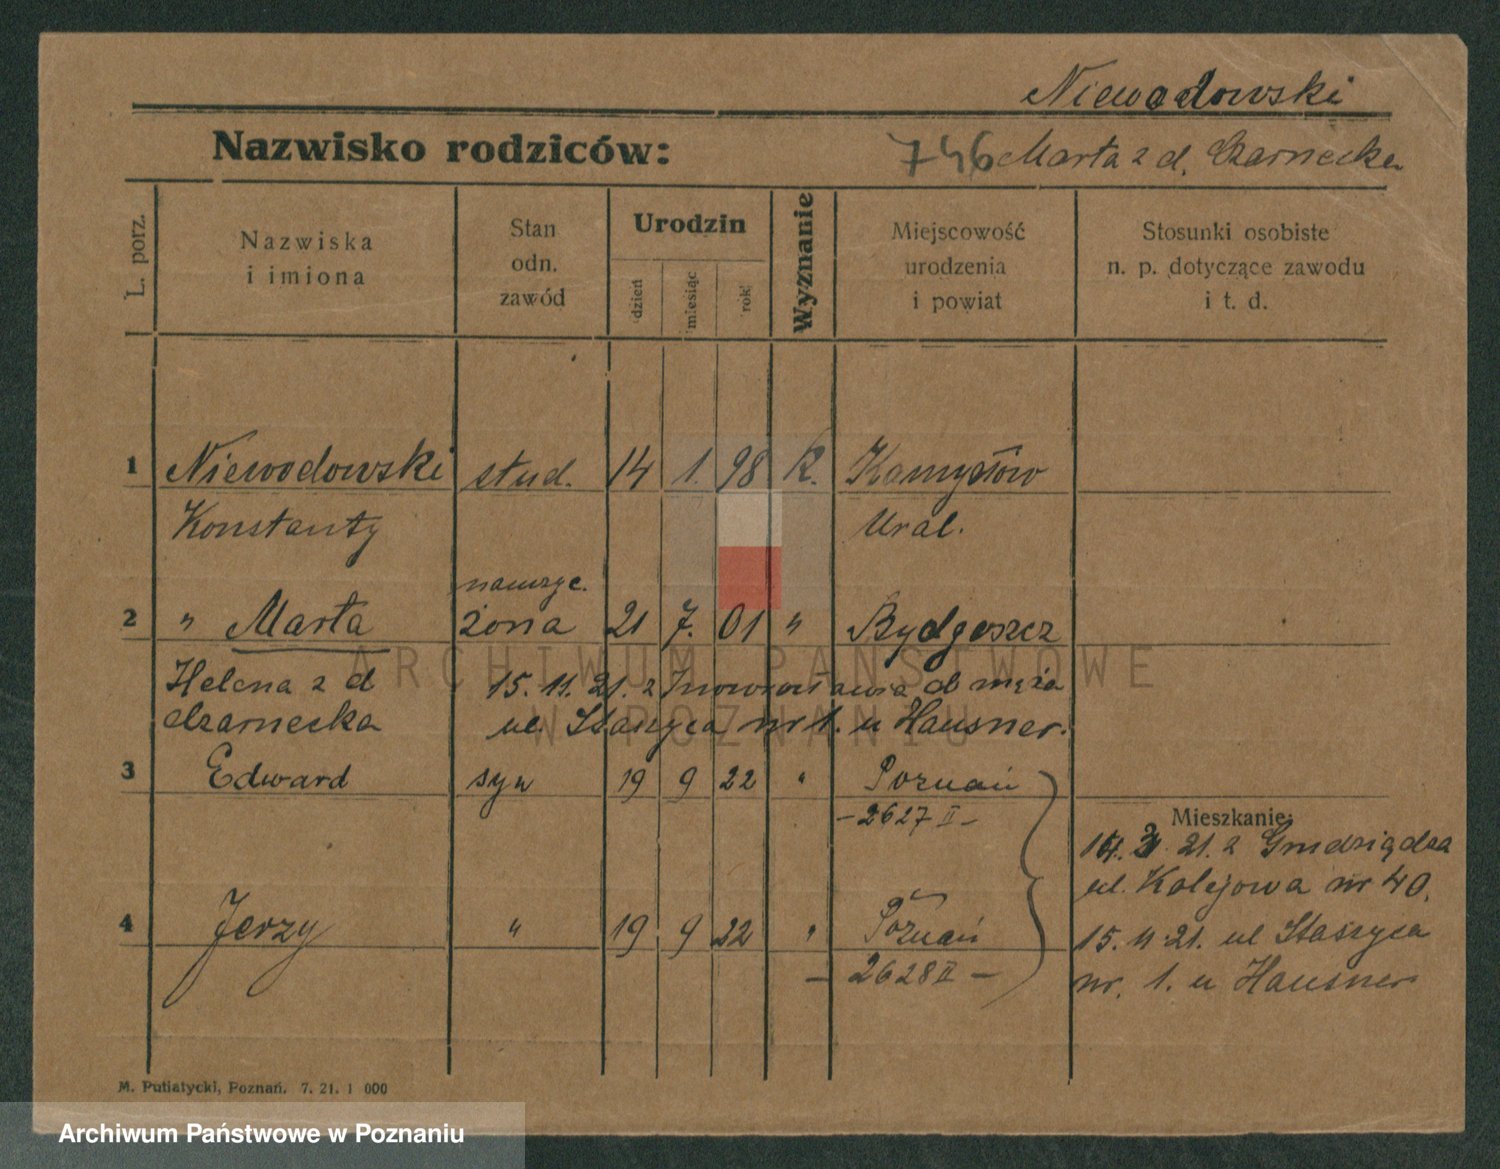 Niewodowski
Nazwisko rodziców:
746 Marta z d. Czarnecka
L. porz.
Nazwiska
i imiona
Stan
odn.
zawód
Urodzin
dzień
miesiąc
rok
Wyznanie
Miejscowość
urodzenia
i powiat
Stosunki osobiste
n. p. dotyczące zawodu
i t. d.
1 Niewodowski stud. 14 1. 98 K. Kamyszłów
Konstanty Ural.
naucz.
2 " Marta żona 21 7. 01 " Bydgoszcz
Helena z d 15. 11. 21. z Inowrocławia od męża
Czarnecka ul. Staszyca nr 1. u Hausner.
3 Edward syn 19 9 22 " Poznań
- 2627 II -
Mieszkanie:
21. z Grudziądza
ul. Kolejowa nr 40.
4 Jerzy " 19 9 22 " Poznań
15. 11. 21. ul Staszyca
- 2628 II -
nr. 1. u Hausner
M. Putiatycki, Poznań. 7. 21. 1 000
ARCHIWUM PAŃSTWOWE
W POZNANIU
Archiwum Państwowe w Poznaniu